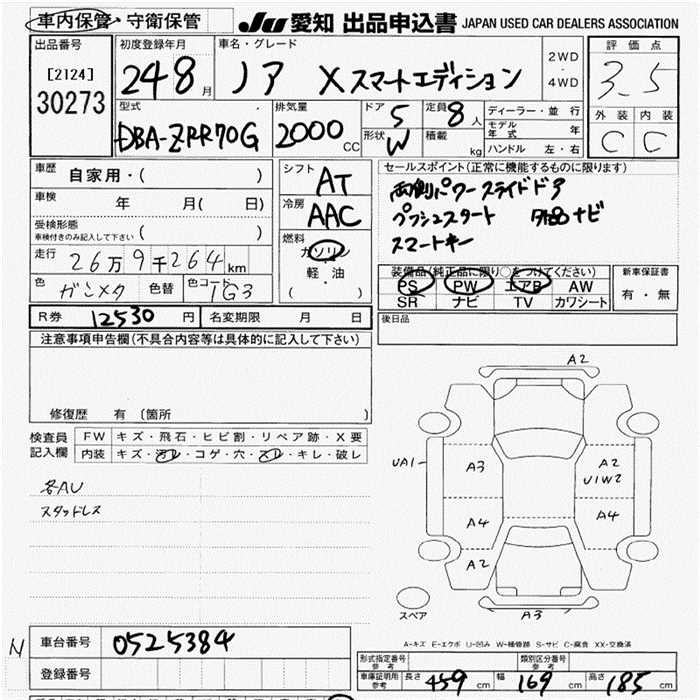 車内保管・守衛保管 JU 愛知 出品申込書 JAPAN USED CAR DEALERS ASSOCIATION
出品番号 初度登録年月 車名・グレード 2WD・4WD 評価点
[2124] 30273 24 8月 ノア X スマートエディション 3.5
型式 排気量 ドア 5 定員 8人 ディーラー・並行 外装 内装
DBA-ZRR70G 2000cc 形状 W 積載 kg モデル年式 年 C C
ハンドル 左・右
車歴 自家用・( ) シフト AT セールスポイント(正常に機能するものに限ります)
車検 年 月( 日) 冷房 AAC 両側パワースライドドア
受検形態 ( ) プッシュスタート 外品ナビ
車検付きのみ記入して下さい 燃料 ガソリン スマートキー
走行 26万9千264km 軽・油
色 ガンメタ 色替 色コード 1G3 ( )
装備品(純正品に限り○をつけてください) 新車保証書
PS PW エアB AW 有・無
SR ナビ TV カワシート
R券 12530円 名変期限 月 日 後日品
注意事項申告欄(不具合内容等は具体的に記入して下さい)
修復歴 有 〔箇所 〕
検査員記入欄 FW キズ・飛石・ヒビ割・リペア跡・X要
内装 キズ・汚レ・コゲ・穴・スレ・キレ・破レ
各AU
スタッドレス
A2
UA1 A3 A2
U1W2
A4 A4
A2
スペア A3
A-キズ E-エクボ U-凹み W-補修跡 S-サビ C-腐食 XX-交換済
N 車台番号 0525384
登録番号
形式指定番号 参考 類別区分番号 参考
車庫証明用 参考 長さ 459cm 幅 169cm 高さ 185cm